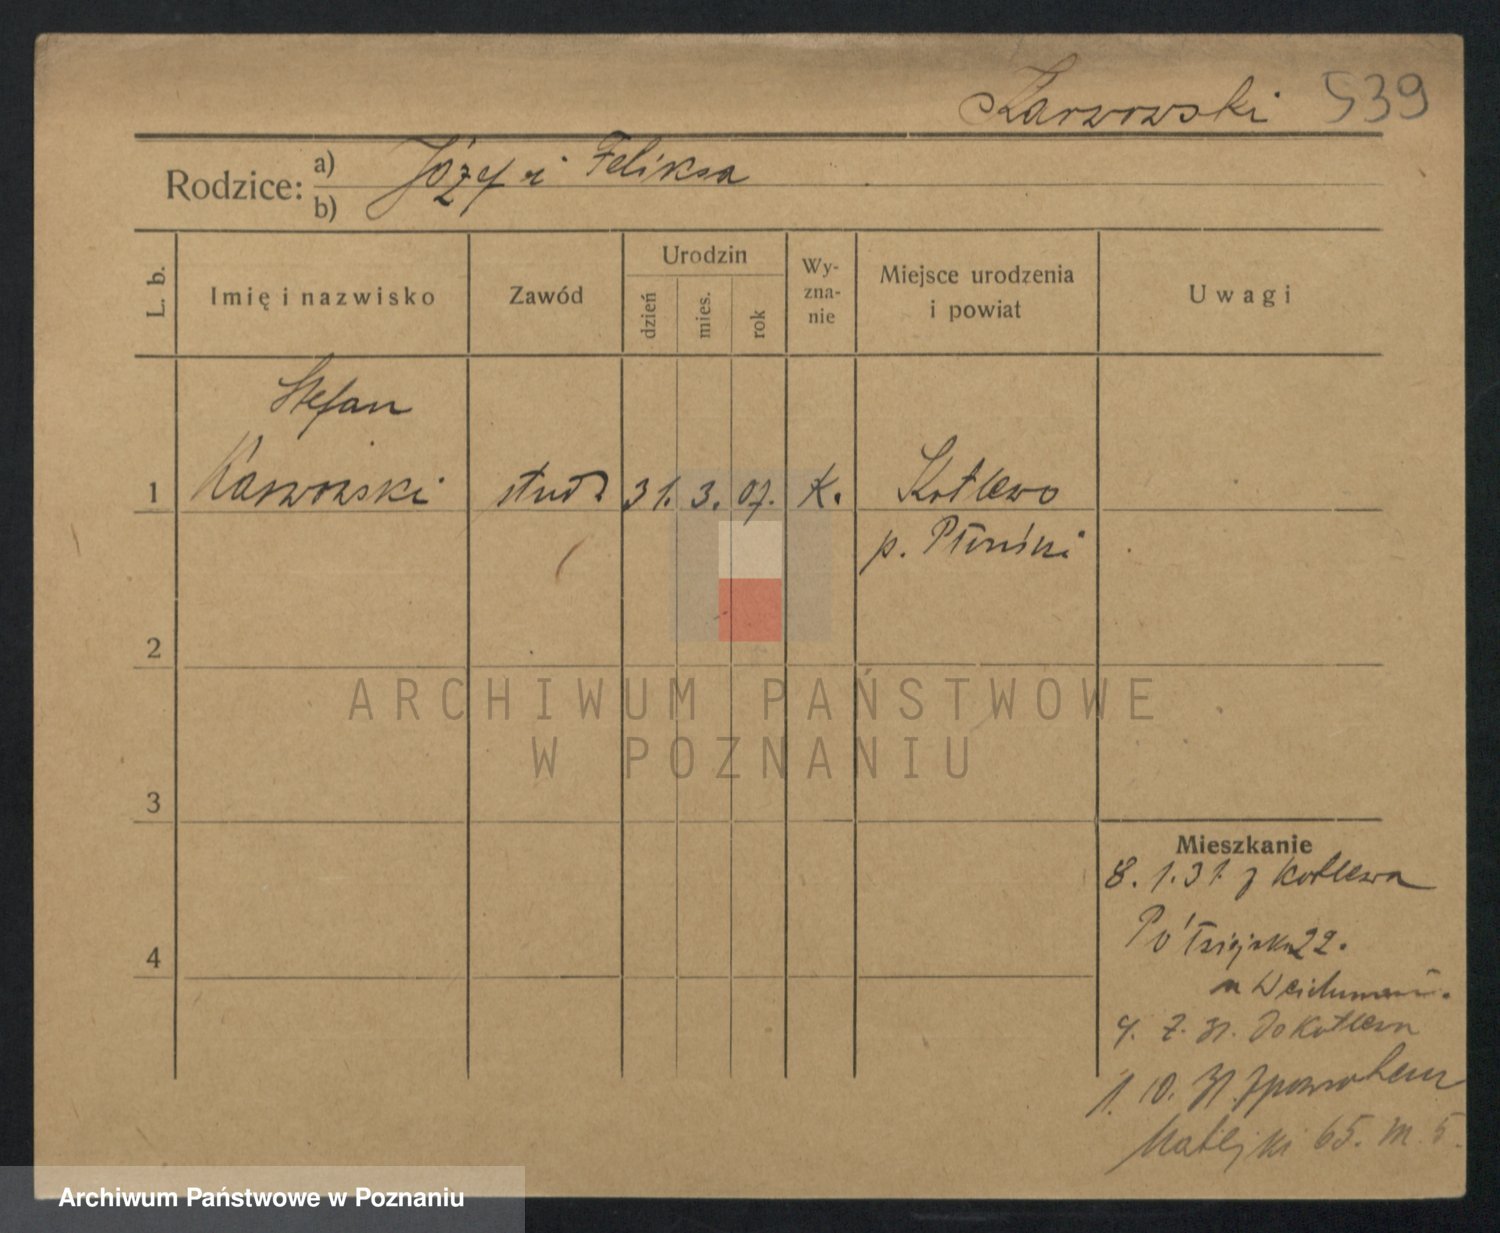 Karwowski 539
Rodzice: a) Józef i Feliksa
b)
L. b.
Imię i nazwisko
Zawód
Urodzin
dzień
mies.
rok
Wy-
zna-
nie
Miejsce urodzenia
i powiat
Uwagi
Stefan
1 Karwowski stud. 31. 3. 07. K. Kotlewo
p. Płoński
2
3
4
Mieszkanie
8. 1. 31. z Kotlewa
22.
do Kotlewa
1. 10. 31. z powrotem
Matejki 65. m. 5.
ARCHIWUM PAŃSTWOWE
W POZNANIU
Archiwum Państwowe w Poznaniu